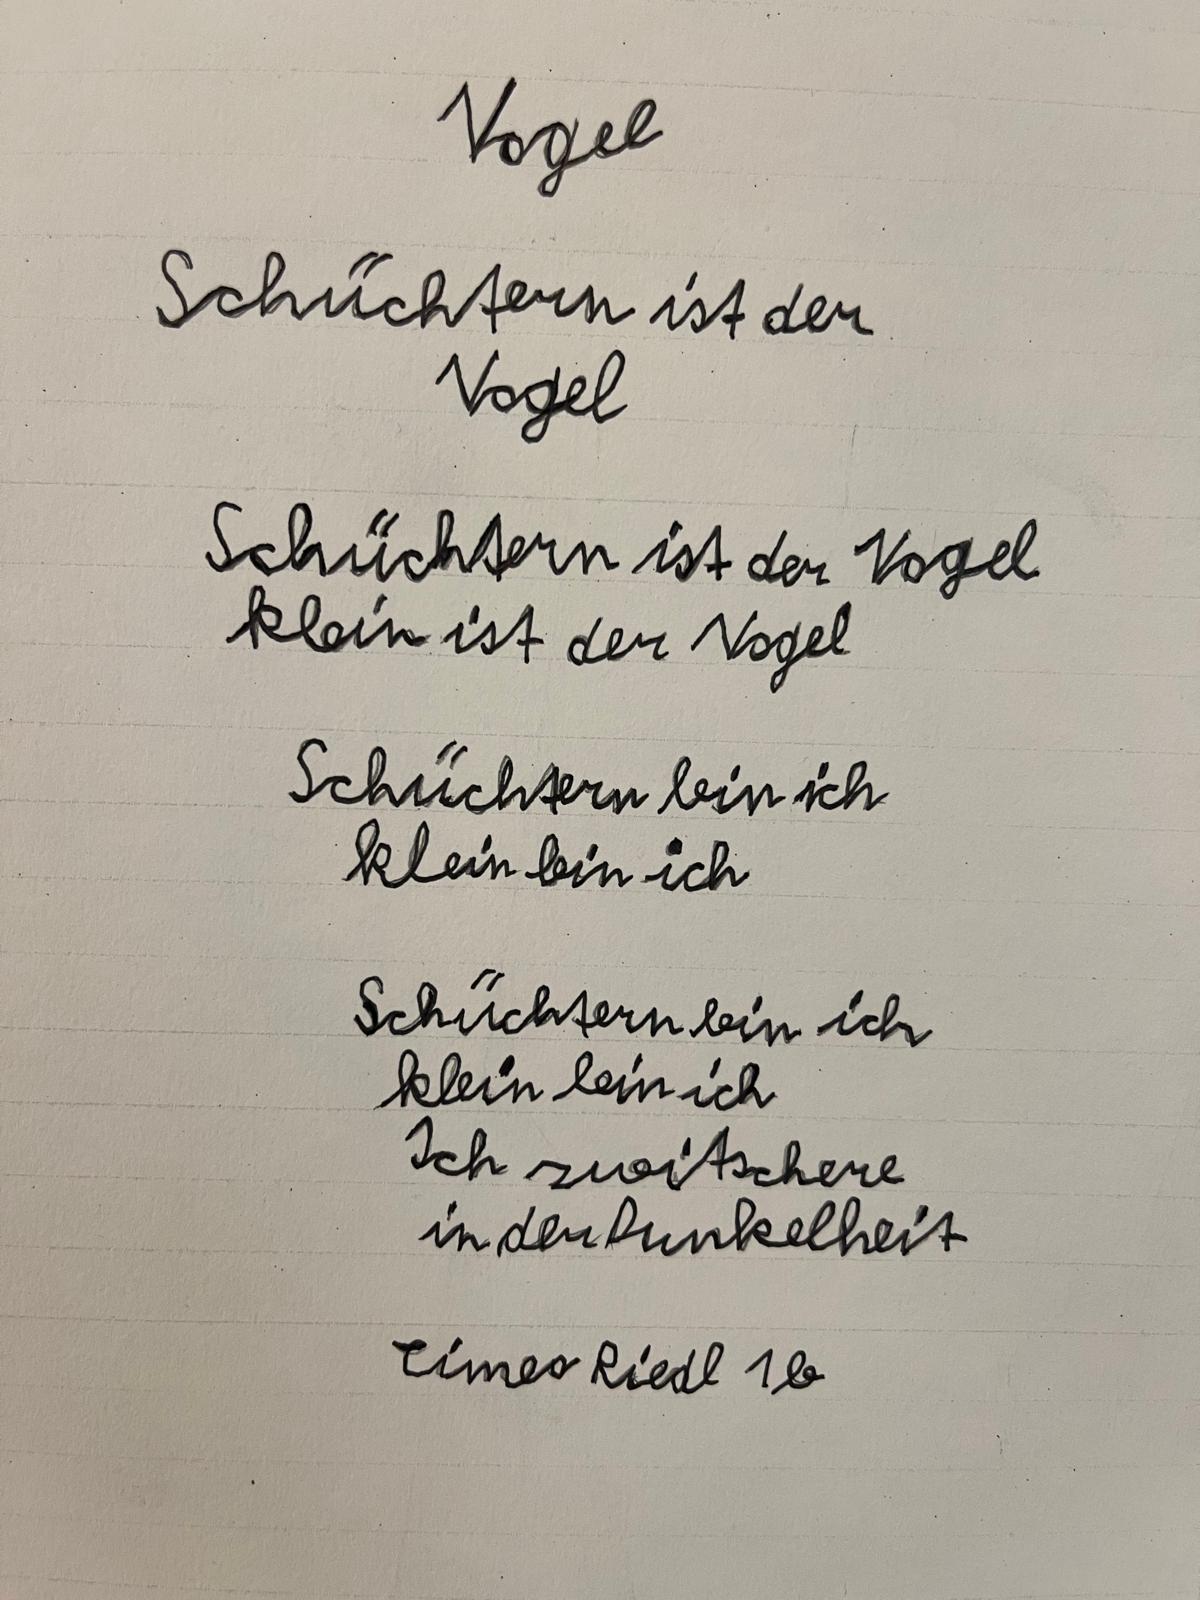 Vogel
Schüchtern ist der
Vogel
Schüchtern ist der Vogel
klein ist der Vogel
Schüchtern bin ich
klein bin ich
Schüchtern bin ich
klein bin ich
Ich zwitschere
in der Dunkelheit
Timeo Riedl 1b